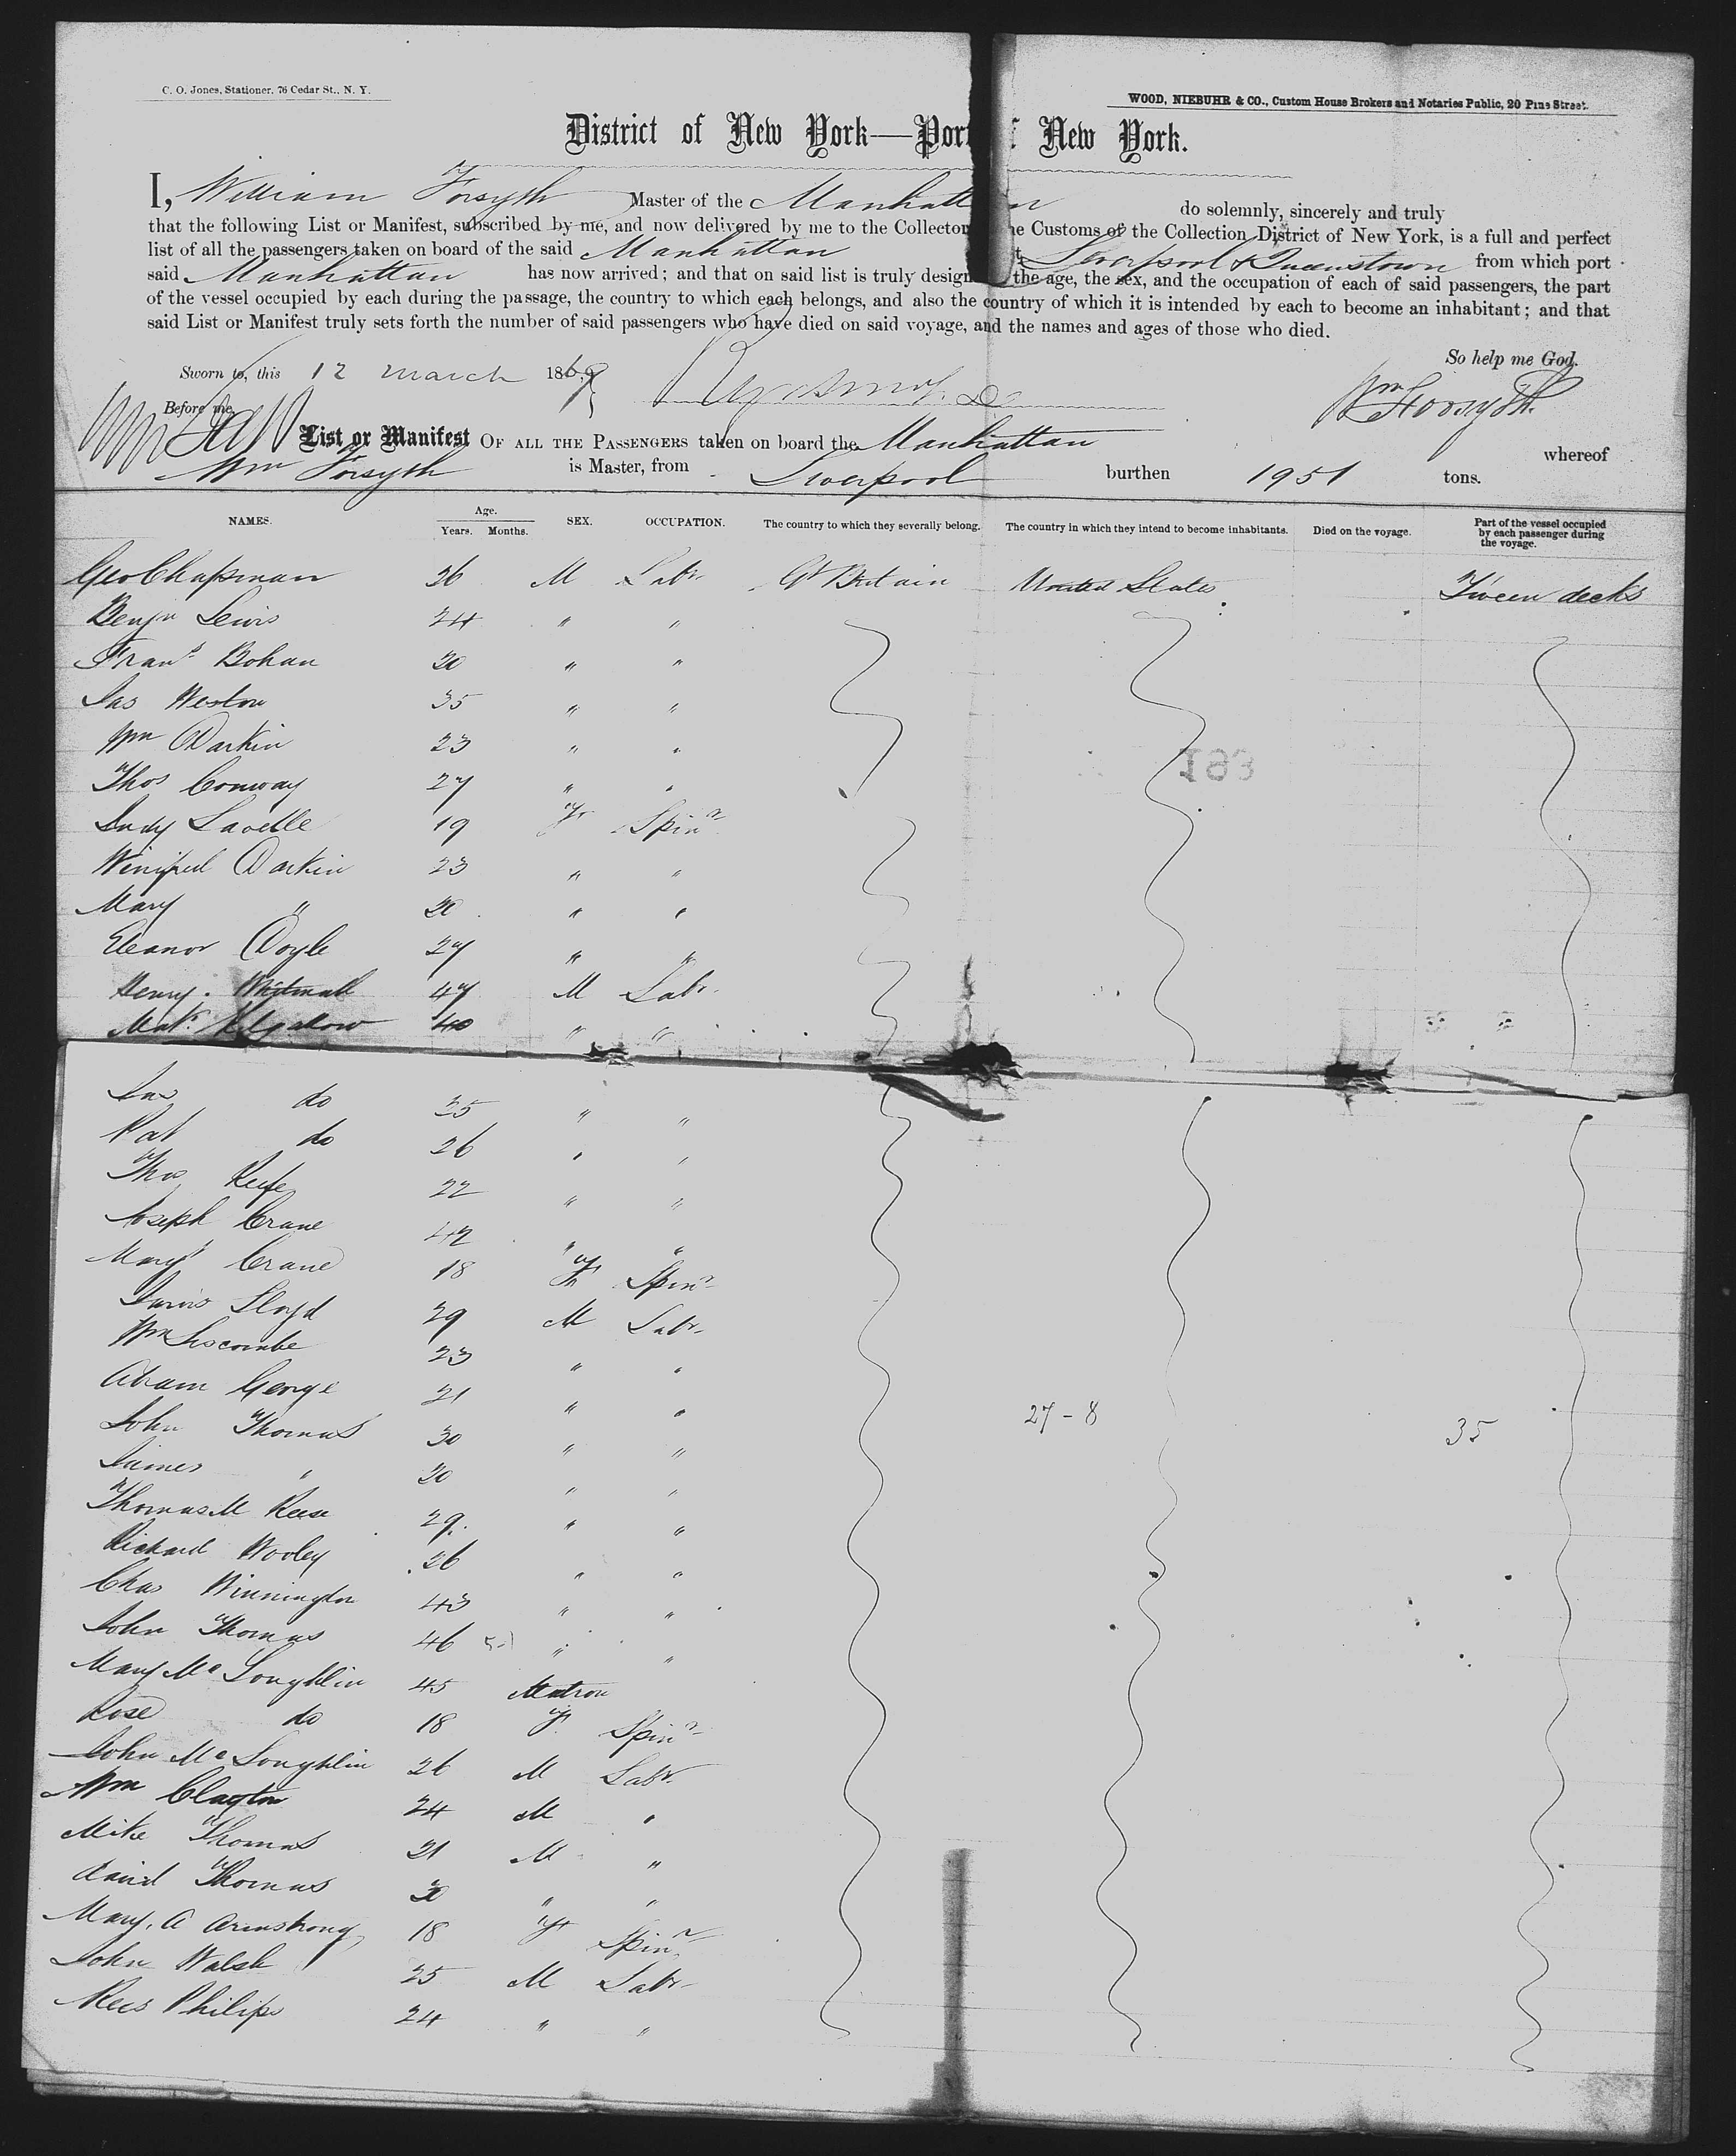 C. O. Jones, Stationer, 76 Cedar St., N. Y.
WOOD, NIEBUHR & CO., Custom House Brokers and Notaries Public, 20 Pine Street.
District of New York—Port New York.
I, William Forsyth Master of the Manhattan do solemnly, sincerely and truly
that the following List or Manifest, subscribed by me, and now delivered by me to the Collector Customs of the Collection District of New York, is a full and perfect
list of all the passengers taken on board of the said Manhattan Liverpool & Queenstown from which port
said Manhattan has now arrived; and that on said list is truly design the age, the sex, and the occupation of each of said passengers, the part
of the vessel occupied by each during the passage, the country to which each belongs, and also the country of which it is intended by each to become an inhabitant; and that
said List or Manifest truly sets forth the number of said passengers who have died on said voyage, and the names and ages of those who died.
So help me God.
Sworn to, this 12 march 1869
Wm Forsyth
Before me,
List or Manifest OF ALL THE PASSENGERS taken on board the Manhattan whereof
Wm Forsyth is Master, from Liverpool burthen 1951 tons.
NAMES. Age. Years. Months. SEX. OCCUPATION. The country to which they severally belong. The country in which they intend to become inhabitants. Died on the voyage. Part of the vessel occupied by each passenger during the voyage.
Geo Chapman 26 M Labr. Gt Britain United States Tween decks
Benjn Lewis 24 " "
Frans Bohan 20 " "
Jas Weston 35 " "
Wm Darkin 23 " "
Thos Conway 27 " "
Judy Lavelle 19 F Spinr
Winifred Darkin 23 " "
Mary " 20 " "
Eleanor Doyle 27 " "
Henry 47 M Labr.
40 " "
Jas do 25 " "
Pat do 26 " "
Thos Keefe 22 " "
Joseph Crane 42 " "
Mary Crane 18 F Spinr
Lloyd 29 M Labr.
Wm Liscombe 23 " "
Abram George 21 " "
27-8
John Thomas 30 " "
35
James " 20 " "
Thomas M Reese 29 " "
Richard Wooley 26 " "
Chas Winnington 43 " "
John Thomas 46 " "
Mary Mc Loughlin 45 Matron
Rose do 18 F Spinr
John Mc Loughlin 26 M Labr.
Wm Clayton 24 M "
Mike Thomas 21 M "
David Thomas 30 " "
Mary. A Armstrong 18 F Spinr
John Walsh 25 M Labr
Rees Philips 24 " "